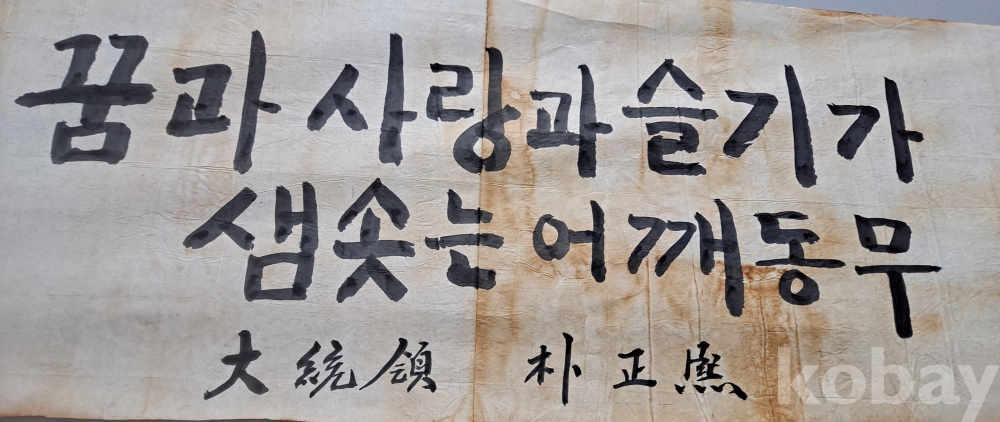 꿈과 사랑과 슬기가
샘솟는 어깨동무
大統領 朴正熙
kobay